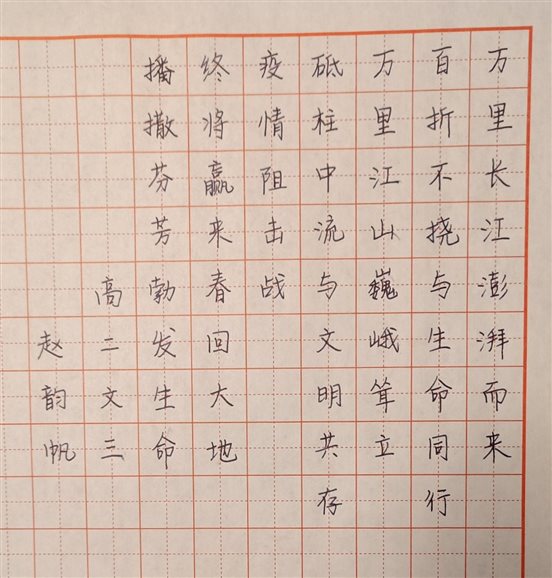 万里长江澎湃而来
百折不挠与生命同行
万里江山巍峨耸立
砥柱中流与文明共存
疫情阻击战
终将赢来春回大地
播撒芬芳勃发生命
高二文三
赵韵帆